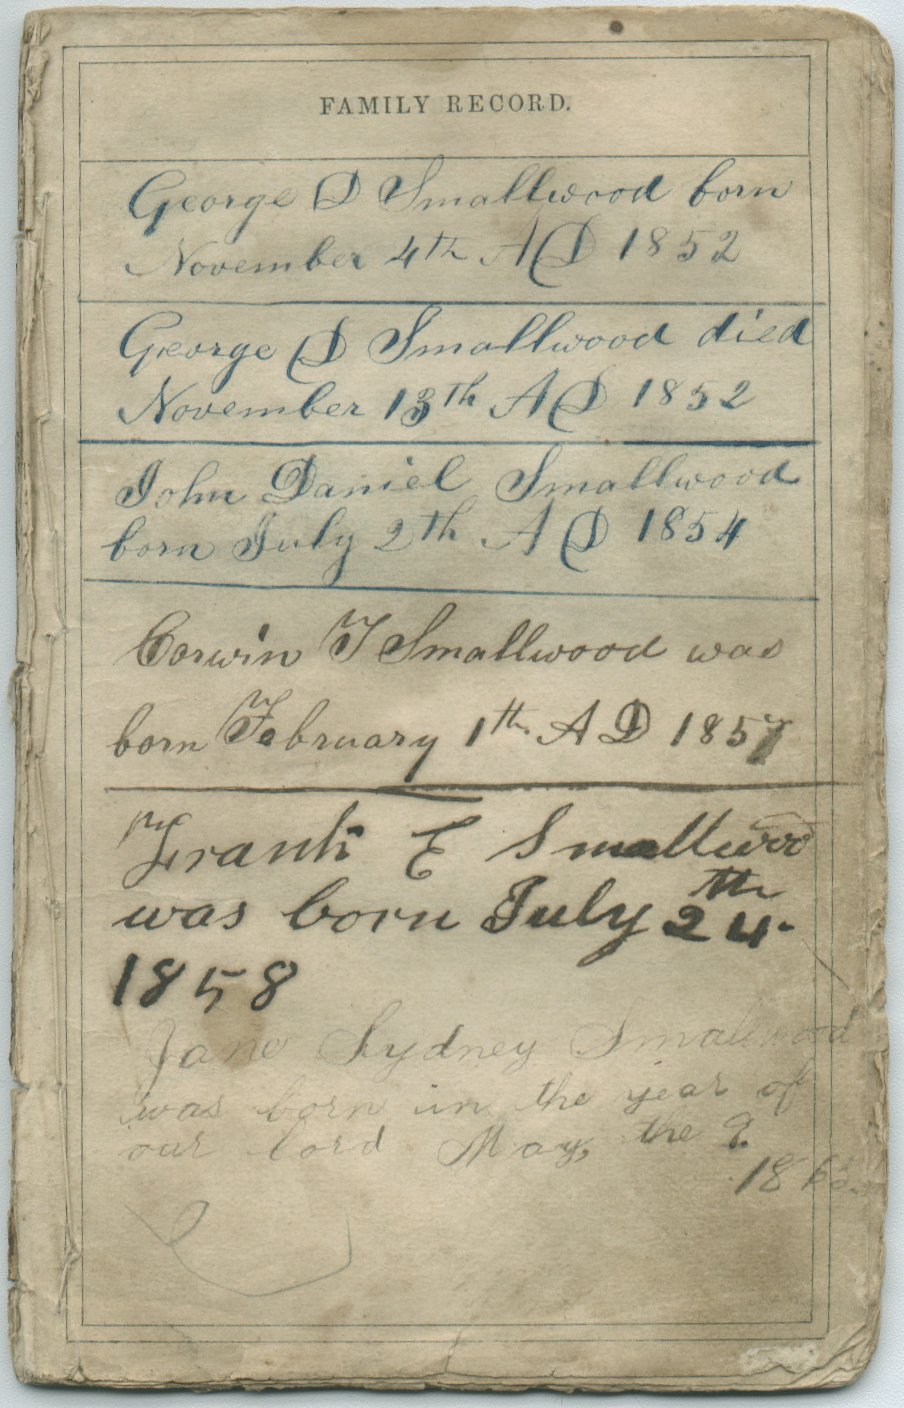 FAMILY RECORD.
George D Smallwood born
November 4th A D 1852
George D Smallwood died
November 13th A D 1852
John Daniel Smallwood
born July 2th A D 1854
Corwin T Smallwood was
born February 1th A D 1857
Frank E Smallwoo
was born July 24th
1858
Jane Sydney Smallwood
was born in the year of
our lord May, the 9.